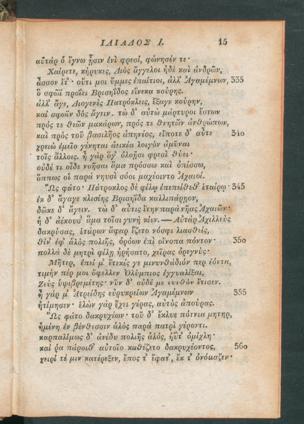 ΙΛΙΑΔΟΣ Ι. 15
αὐτὰρ ὁ ἔγνω ᾗσιν ἐνὶ φρεσὶ, φώνησέν τε·
Χαίρετε, κήρυκες, Διὸς ἄγγελοι ἠδὲ καὶ ἀνδρῶν,
ἆσσον ἴτ'· οὔτι μοι ὔμμες ἐπαίτιοι, ἀλλ' Ἀγαμέμνων, 335
ὁ σφῶϊ προΐει Βρισηΐδος εἵνεκα κούρης.
ἀλλ' ἄγε, Διογενὲς Πατρόκλεις, ἔξαγε κούρην,
καὶ σφωῒν δὸς ἄγειν. τὼ δ' αὐτὼ μάρτυροι ἔστων
πρός τε θεῶν μακάρων, πρός τε θνητῶν ἀνθρώπων,
καὶ πρὸς τοῦ βασιλῆος ἀπηνέος, εἴποτε δ' αὖτε 340
χρειὼ ἐμεῖο γένηται ἀεικέα λοιγὸν ἀμῦναι
τοῖς ἄλλοις. ἦ γὰρ ὅγ' ὀλοῇσι φρεσὶ θύει·
οὐδέ τι οἶδε νοῆσαι ἅμα πρόσσω καὶ ὀπίσσω,
ὅππως οἱ παρὰ νηυσὶ σόοι μαχέοιντο Ἀχαιοί.
Ὣς φάτο· Πάτροκλος δὲ φίλῳ ἐπεπείθεθ' ἑταίρῳ· 345
ἐκ δ' ἄγαγε κλισίης Βρισηΐδα καλλιπάρῃον,
δῶκε δ' ἄγειν. τὼ δ' αὖτις ἴτην παρὰ νῆας Ἀχαιῶν·
ἡ δ' ἀέκουσ' ἅμα τοῖσι γυνὴ κίεν. — Αὐτὰρ Ἀχιλλεὺς
δακρύσας, ἑτάρων ἄφαρ ἕζετο νόσφι λιασθεὶς,
θῖν' ἐφ' ἁλὸς πολιῆς, ὁρόων ἐπὶ οἴνοπα πόντον· 350
πολλὰ δὲ μητρὶ φίλῃ ἠρήσατο, χεῖρας ὀρεγνύς·
Μῆτερ, ἐπεί μ' ἔτεκές γε μινυνθάδιόν περ ἐόντα,
τιμήν πέρ μοι ὄφελλεν Ὀλύμπιος ἐγγυαλίξαι,
Ζεὺς ὑψιβρεμέτης· νῦν δ' οὐδέ με τυτθὸν ἔτισεν.
ἦ γάρ μ' Ἀτρείδης εὐρυκρείων Ἀγαμέμνων 355
ἠτίμησεν· ἑλὼν γὰρ ἔχει γέρας, αὐτὸς ἀπούρας.
Ὣς φάτο δακρυχέων· τοῦ δ' ἔκλυε πότνια μήτηρ,
ἡμένη ἐν βένθεσσιν ἁλὸς παρὰ πατρὶ γέροντι.
καρπαλίμως δ' ἀνέδυ πολιῆς ἁλὸς, ἠΰτ' ὀμίχλη·
καί ῥα πάροιθ' αὐτοῖο καθέζετο δακρυχέοντος, 360
χειρί τέ μιν κατέρεξεν, ἔπος τ' ἔφατ', ἔκ τ' ὀνόμαζεν·